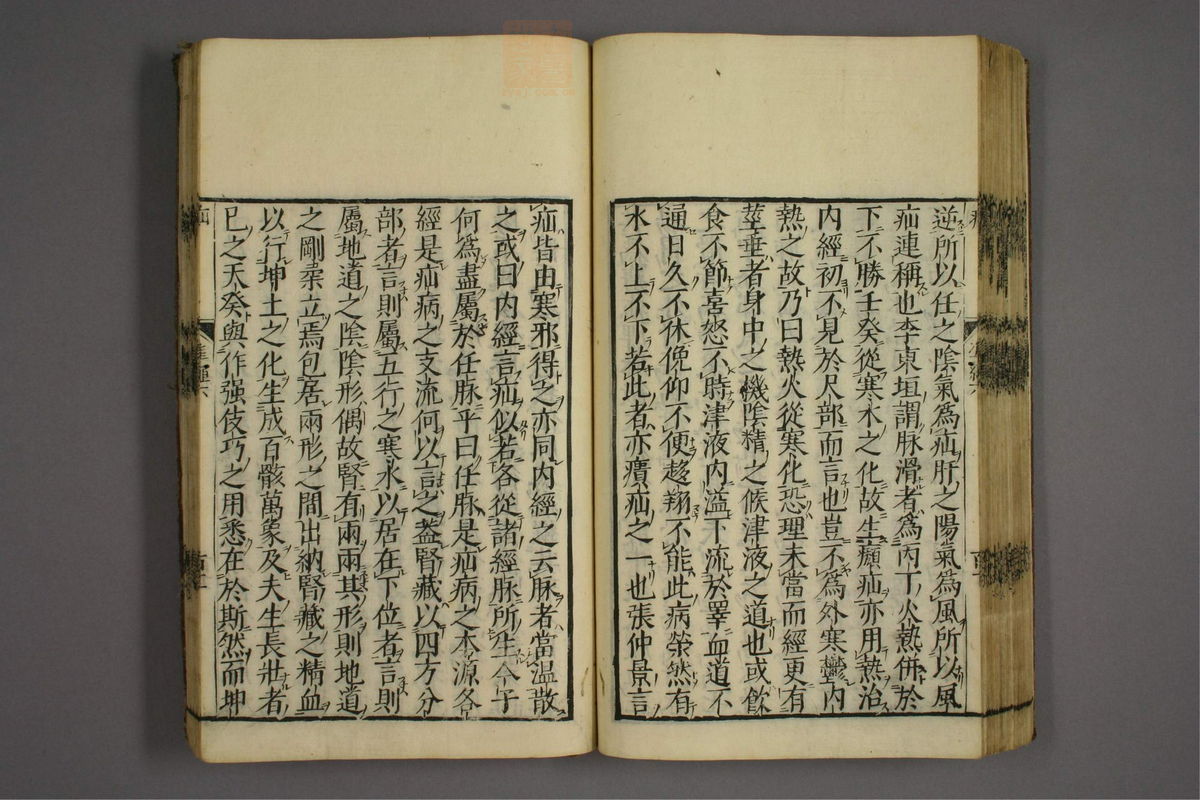 逆所以任之陰氣爲疝肝之陽氣爲風所以風
疝連稱也李東垣謂脉滑者爲丙丁火熱佛於
下不勝壬癸從寒水之化故生㿗疝亦用熱治
内經初不見於尺部而言也豈不爲外寒鬱内
熱之故乃曰熱火從寒化恐理未當而經更有
莖垂者身中之機陰精之候津液之道也或飲
食不節喜怒不時津液内溢下流於睪血道不
通日久不休俛仰不便趍翔不能此病榮然有
水不上不下若此者亦㿉疝之一也張仲景言
疝皆由寒邪得之亦同内經之云脉者當温散
之或曰内經言疝似若各從諸經脉所生今子
何爲盡屬於任脉乎曰任脉是疝病之本源各
經是疝病之支流何以言之蓋腎藏以四方分
部者言則屬五行之寒水以居在下位者言則
屬地道之陰陰形偶故腎有兩兩其形則地道
之剛柔立焉包居兩形之間出納腎藏之精血
以行坤土之化生成百骸萬象及夫生長壯者
已之天癸與作强伎巧之用悉在於斯然而坤